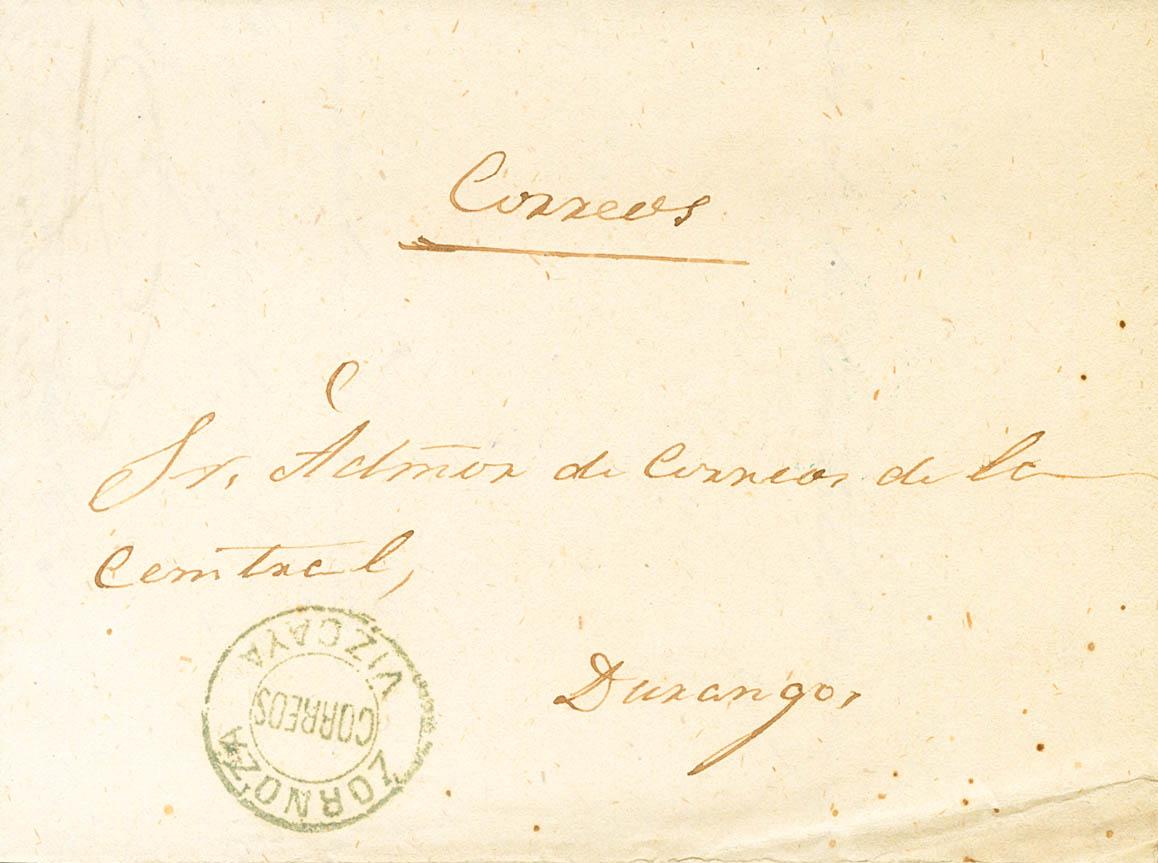 Correos
Sr. Admor de Correos de la
Central,
Durango.
ZORNOZA
CORREOS
VIZCAYA